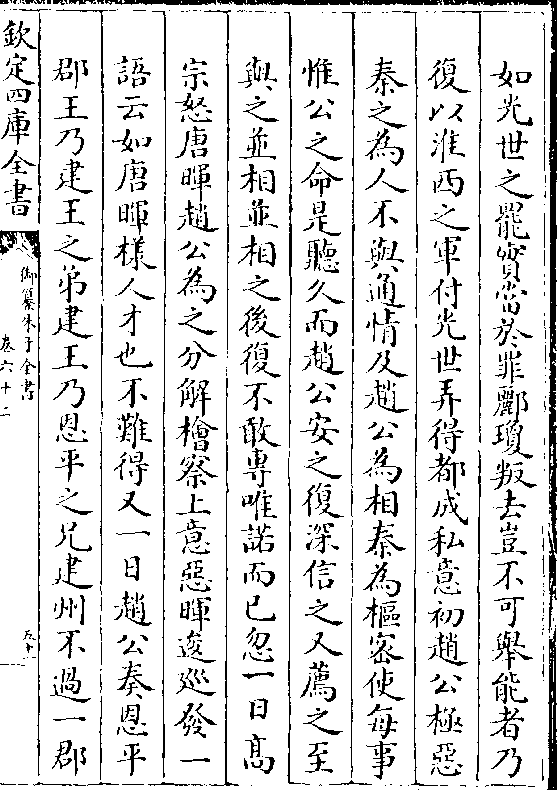 如光世之罷實當於罪酈瓊叛去豈不可舉能者乃
復以淮西之軍付光世弄得都成私意初趙公極惡
秦之為人不與通情及趙公為相秦為樞宻使每事
惟公之命是聽久而趙公安之復深信之又薦之至
與之並相並相之後復不敢専唯諾而已忽一日髙
宗怒唐暉趙公為之分解檜察上意惡暉逡廵發一
語云如唐暉様人才也不難得又一日趙公奏恩平
郡王乃建王之弟建王乃恩平之兄建州不過一郡
欽定四庫全書
御纂朱子全書
卷六十二
五十